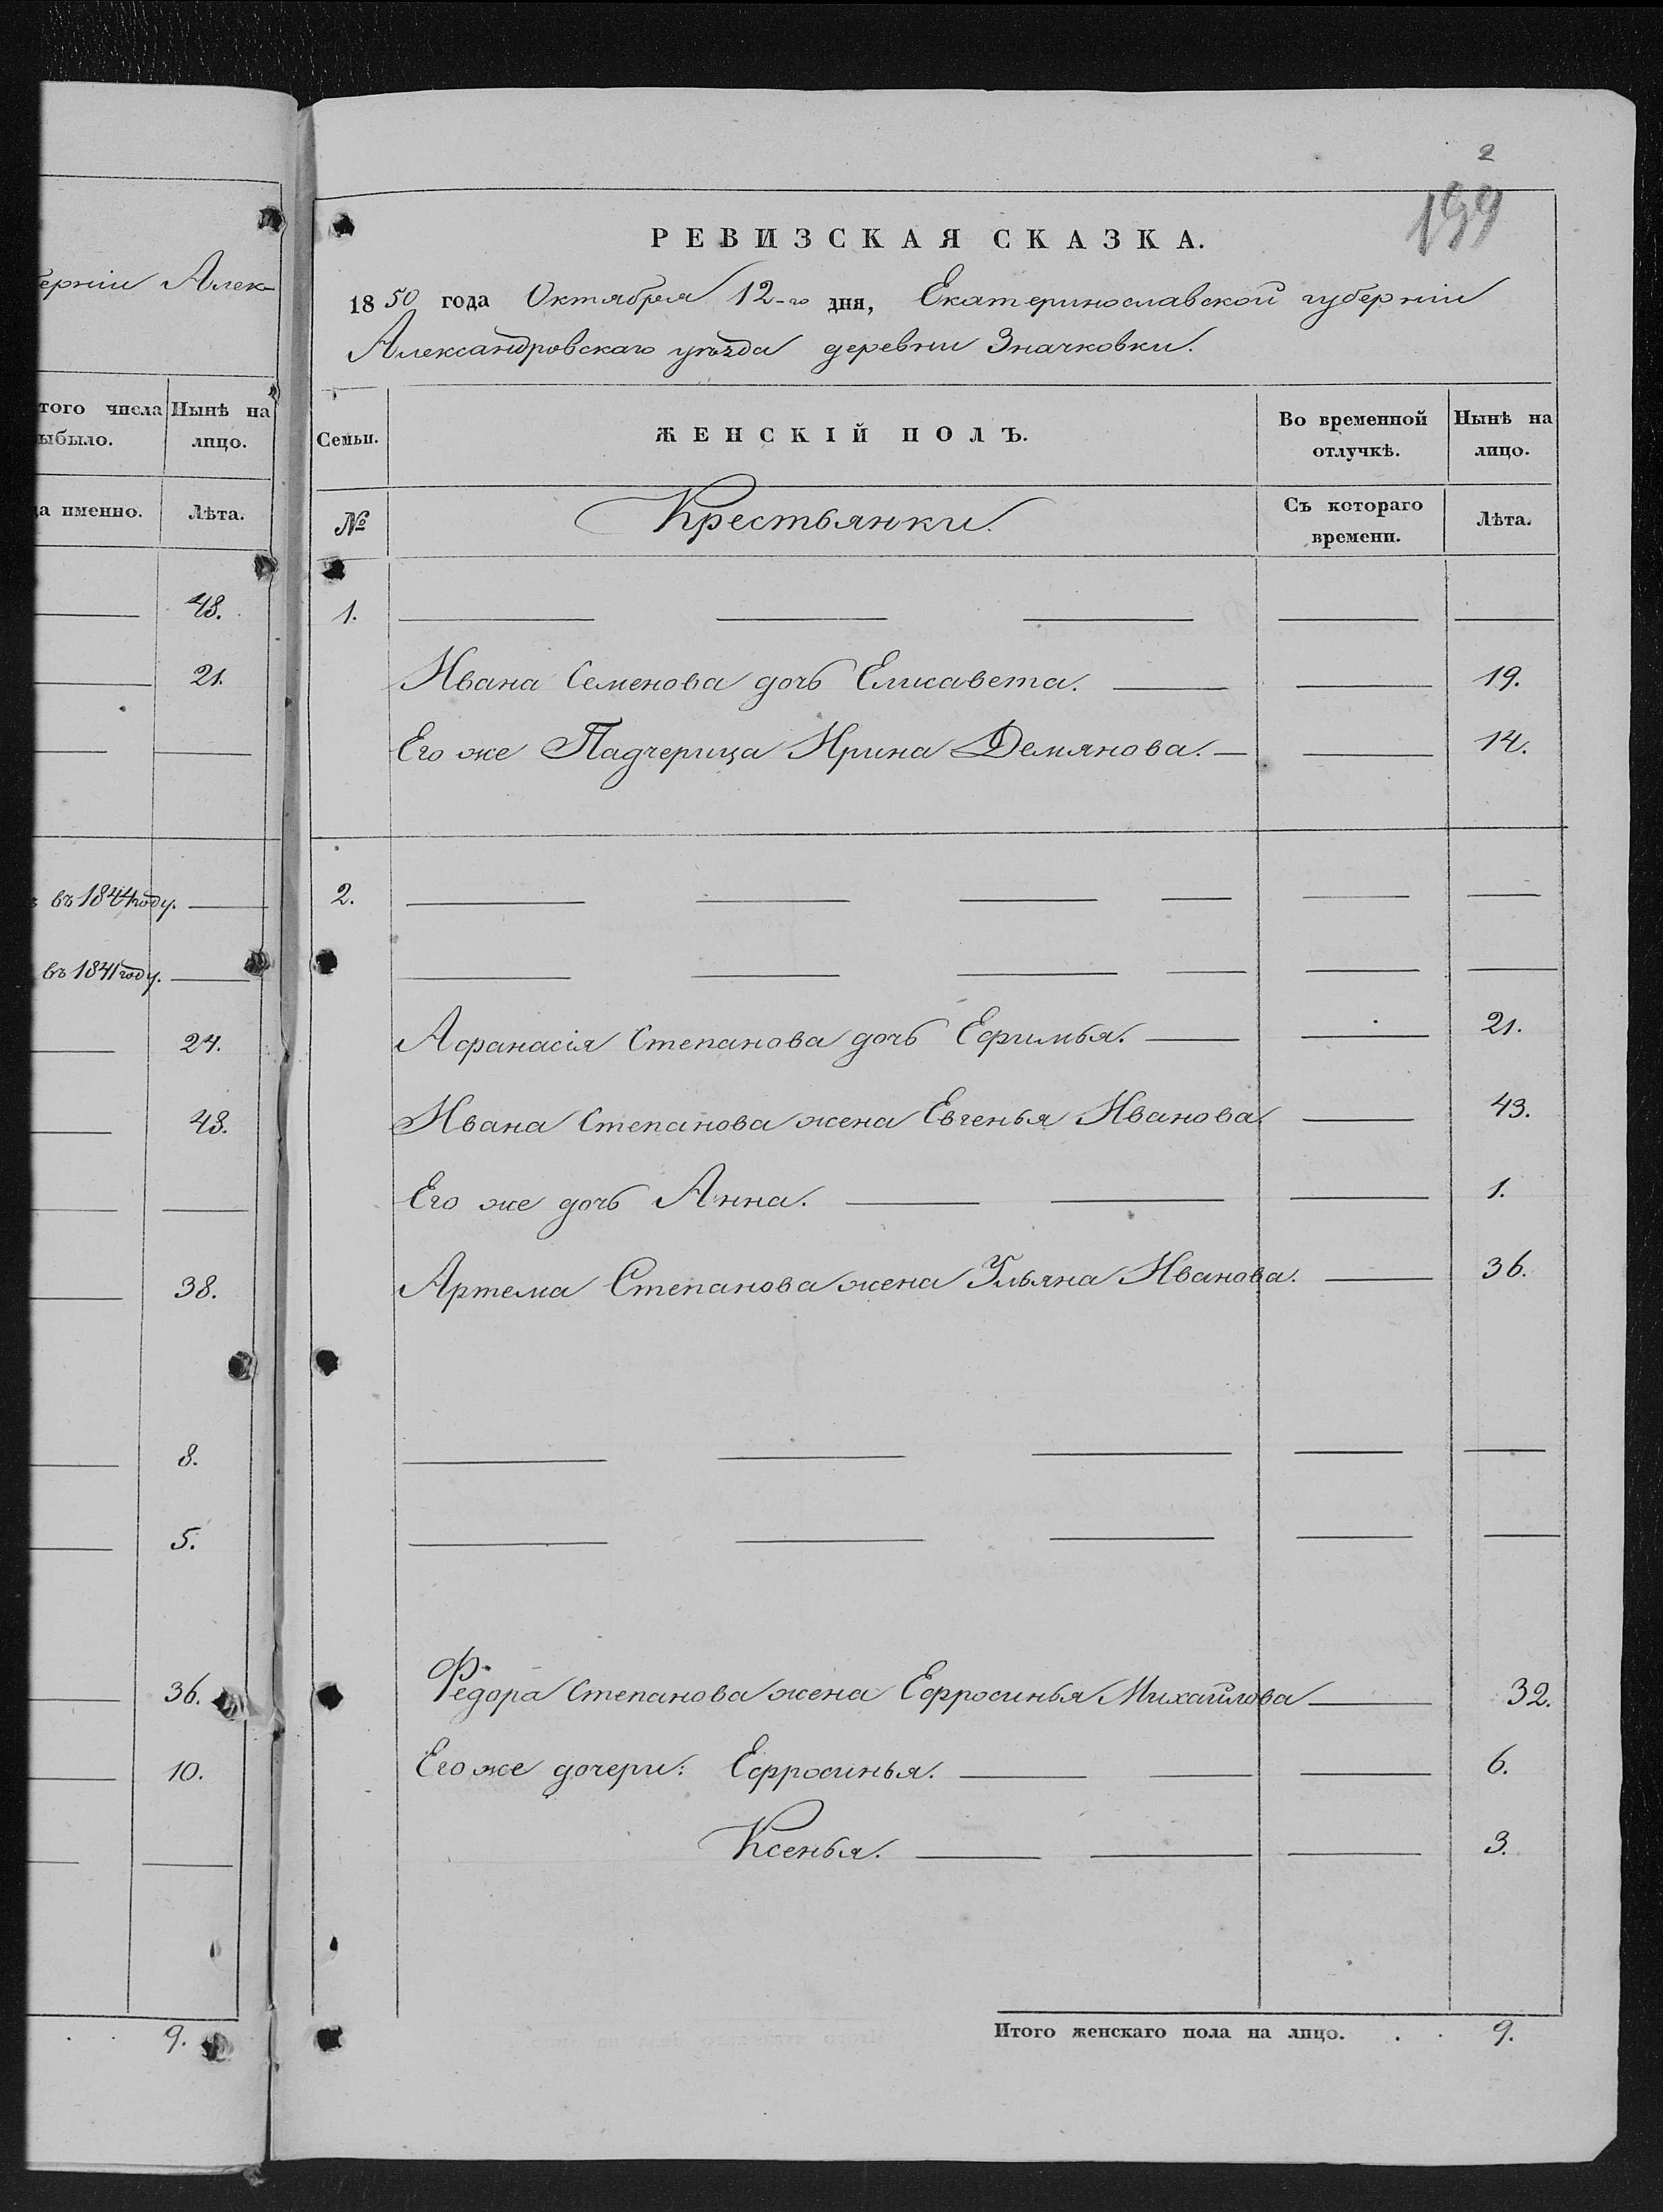 2
199
РЕВИЗСКАЯ СКАЗКА.
1850 года Октября 12-го дня, Екатеринославской губерніи
Александровскаго уѣзда деревни Значковки.
Семьи. ЖЕНСКІЙ ПОЛЪ. Во временной отлучкѣ. Нынѣ на лицо.
№ Крестьянки. Съ котораго времени. Лѣта.
1.
Ивана Семенова дочь Елисавета. 19.
Его же Падчерица Ирина Демянова. 14.
2.
Афанасія Степанова дочь Ефимья. 21.
Ивана Степанова жена Евгенья Иванова. 43.
Его же дочь Анна. 1.
Артема Степанова жена Ульяна Иванова. 36.
Федора Степанова жена Ефросинья Михайлова 32.
Его же дочери: Ефросинья. 6.
Ксенья. 3.
Итого женскаго пола на лицо. . . 9.
ерніи Алек-
того числа Нынѣ на
ыбыло. лицо.
а именно. Лѣта.
48.
21.
въ 1844 году.
въ 1841 году.
24.
48.
38.
8.
5.
36.
10.
. . 9.